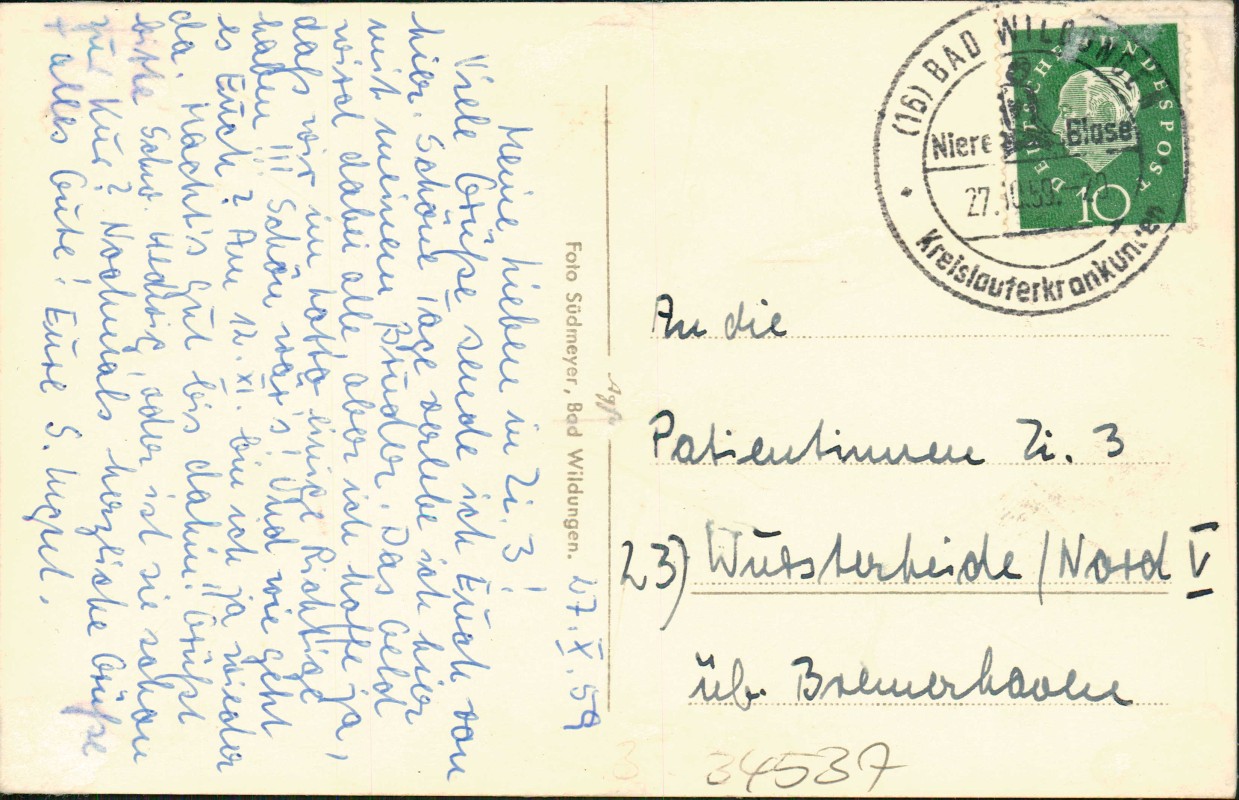 27.X.59
Meine lieben in Zi. 3!
Viele Grüße sende ich Euch von
hier. Schöne Tage verlebe ich hier
mit meinem Bruder. Das Geld
wird dabei alle aber ich hoffe ja,
daß wir im Lotto einige Richtige
haben!!! Schön wär's! Und wie geht
es Euch? Am 12. XI. bin ich ja wieder
da. Macht's gut bis dahin!! Grüßt
bitte Schw. Hedwig, oder ist sie schon
zur Kur? Nochmals herzliche Grüße
+ alles Gute! Eure S.
Foto Südmeyer, Bad Wildungen.
Agfa
(16) BAD WILDUNGEN
Niere Blase
27.10.59.
Kreislauferkrankungen
DEUTSCHE BUNDESPOST
10
An die
Patientinnen Zi. 3
23) Wursterheide / Nord V
üb. Bremerhaven
34537
3